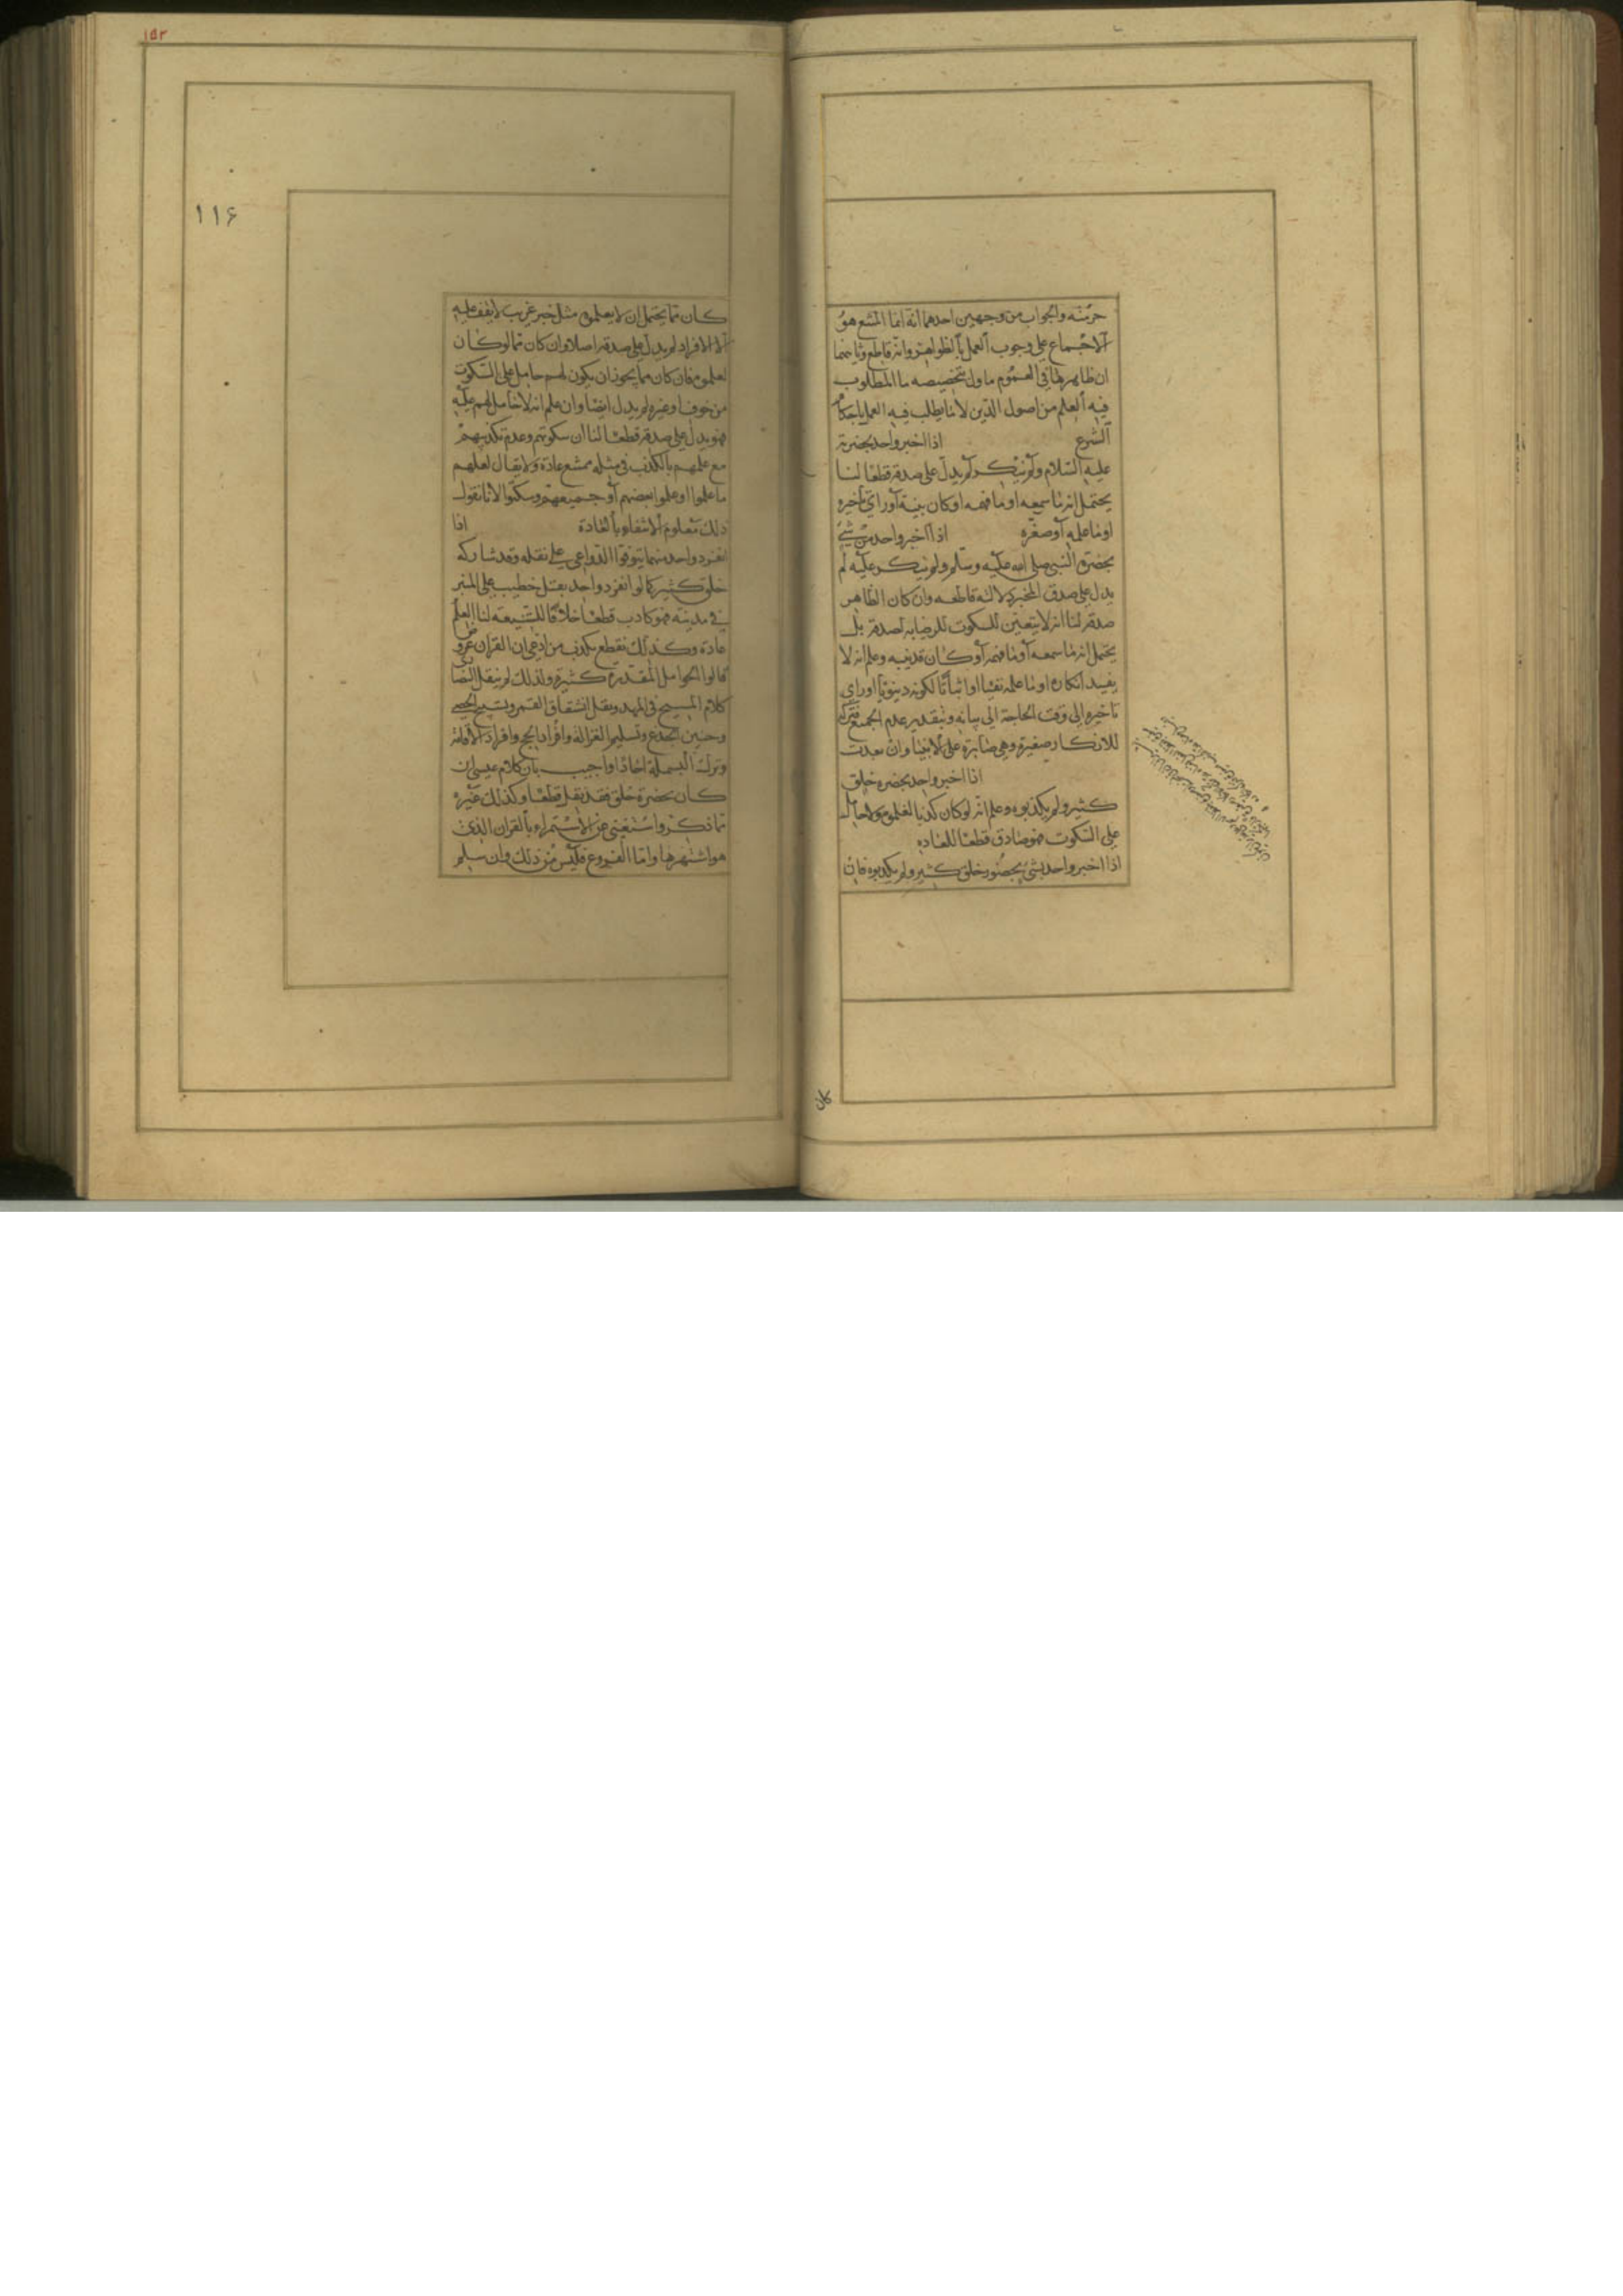 حرمته والجواب من وجهين احدهما انه انما المتبع هو
الاجماع على وجوب العمل بالظواهر وانه قاطع وثانيهما
ان ظاهرها فى العموم ماول بتخصيصه بما المطلوب
فيه العلم من اصول الدين لا ما يطلب فيه العمل باحكام
الشرع اذا اخبر واحد بحضرته
عليه السلام ولم ينكر لم يدل على صدقه قطعا لنا
يحتمل انه ما سمعه او ما فهمه او كان بينه او راى تاخيره
او ما علمه او صغره اذا اخبر واحد من شئ
بحضرة النبى صلى الله عليه وسلم ولم ينكر عليه لم
يدل على صدق المخبر دلالة قاطعه وان كان الظاهر
صدقه لنا انه لا يتعين للسكوت للرضا به لصدقه بل
يحتمل انه ما سمعه او ما فهمه او كان قد بينه وعلم انه لا
يفيد انكاره او ما علمه نفيا او اثباتا لكونه دينويا او راى
تاخيره الى وقت الحاجة الى بيانه وبتقدير عدم الجميع فتركه
للانكار صغيرة وهى جايزة على الانبيا وان بعدت
اذا اخبر واحد بحضرة خلق
كثير ولم يكذبوه وعلم انه لو كان كذبا لعلموه ولا حامل
على السكوت فهو صادق قطعا للعاده
اذا اخبر واحد بشئ بحضور خلق كثير ولم يكذبوه فان
كان
١٥٣
١١۶
كان مما يحتمل ان لا يعلموه مثل خبر غريب لا يقف عليه
الا الافراد لم يدل على صدقه اصلا وان كان مما لو كان
لعلموه فان كان مما يجوز ان يكون لهم حامل على السكوت
من خوف او غيره لم يدل ايضا وان علم انه لا حامل لهم عليه
فهو يدل على صدقه قطعا لنا ان سكوتهم وعدم تكذيبهم
مع علمهم بالكذب فى مثله ممتنع عادة ولا يقال لعلهم
ما علموا او علموا بعضهم او جميعهم وسكتوا لانا نقول
ذلك معلوم الانتفاء بالعادة اذا
انفرد واحد فيما يتوفر الدواعى على نقله وقد شاركه
خلق كثير كما لو انفرد واحد بقتل خطيب على المنبر
فى مدينة فهو كاذب قطعا خلافا للشيعة لنا العلم
عادة وكذلك نقطع بكذب من ادعى ان القران عورض
قالوا الحوامل المقدرة كثيرة ولذلك لم ينقل النصارى
كلام المسيح فى المهد ونقل انشقاق القمر وتسبيح الحصى
وحنين الجذع وتسليم الغزالة وافراد الحج وافراد الاقامة
وترك البسملة احادا واجيب بان كلام عيسى ان
كان بحضرة خلق فقد نقل قطعا وكذلك غيره
مما ذكر واستغنى عن الاستمرار بالقران الذى
هو اشتهرها واما الفروع فليس من ذلك وان سلم